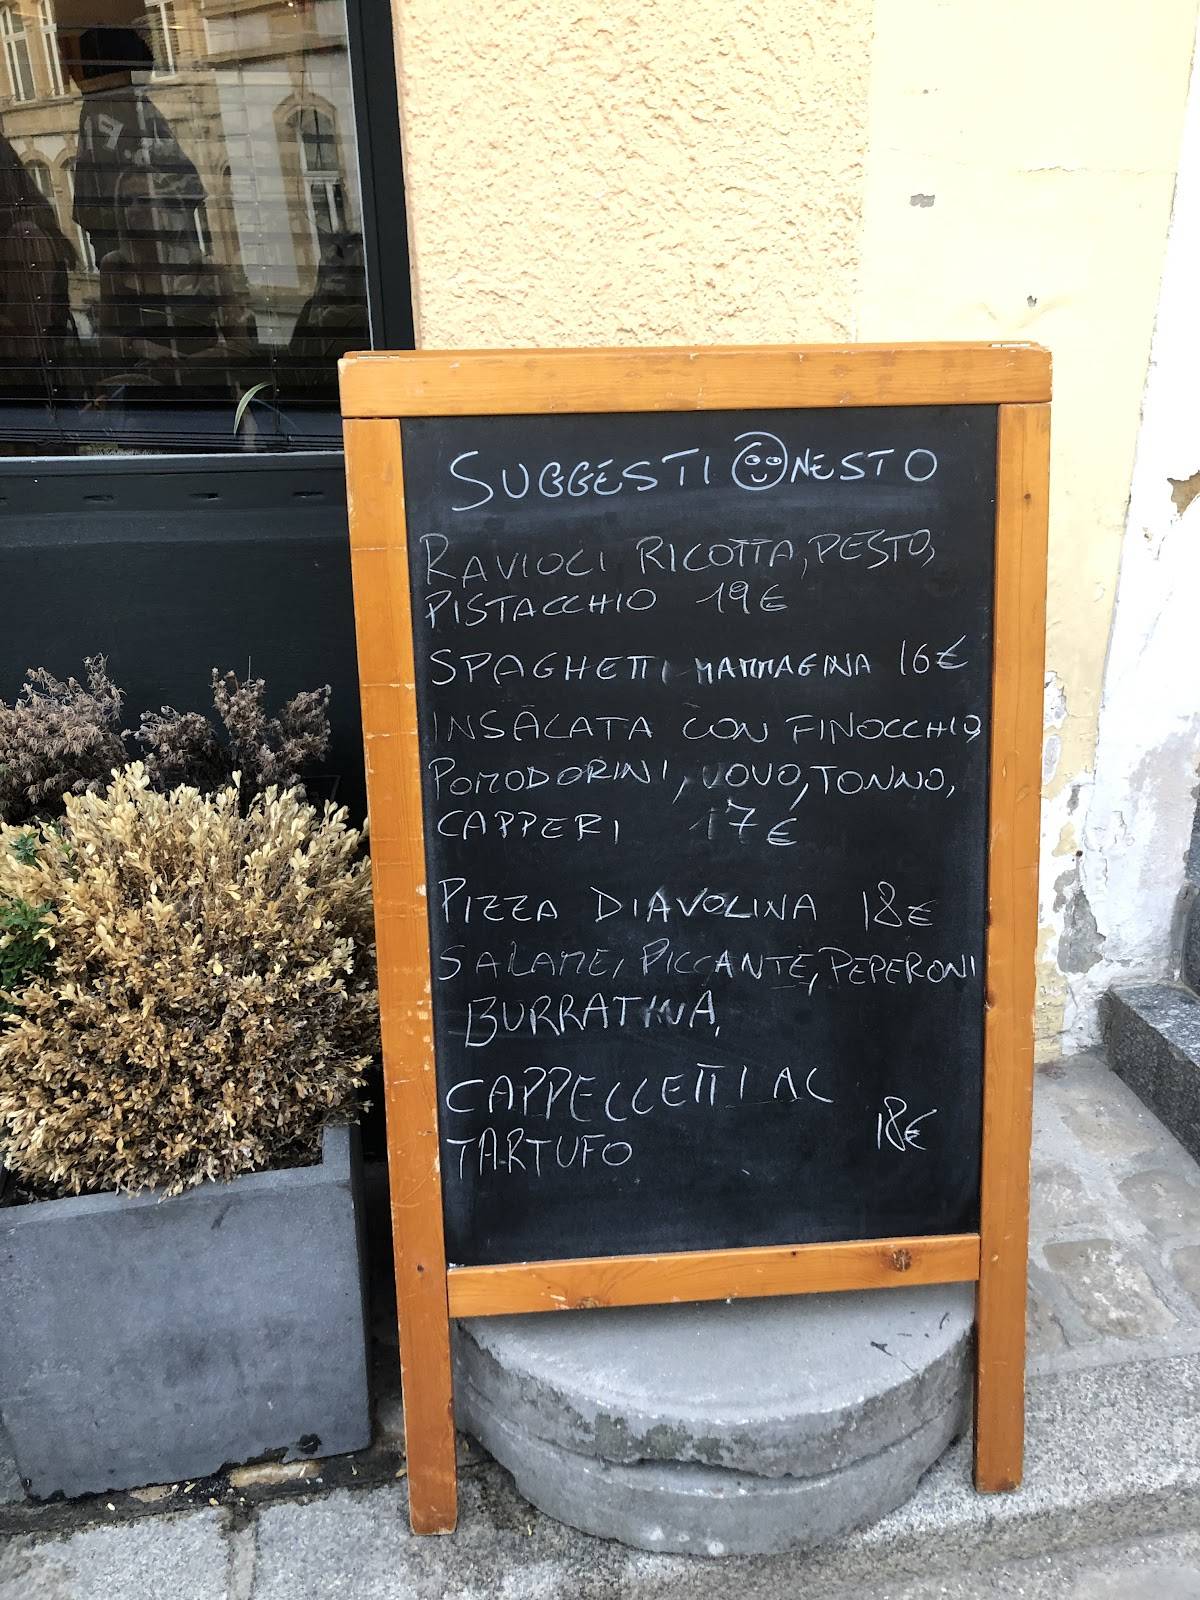 SUGGESTI ONESTO
RAVIOLI RICOTTA, PESTO,
PISTACCHIO 19€
SPAGHETTI MAMMAGINA 16€
INSALATA CON FINOCCHIO,
POMODORINI, UOVO, TONNO,
CAPPERI 17€
PIZZA DIAVOLINA 18€
SALAME, PICCANTE, PEPERONI
BURRATINA,
CAPPELLETTI AL
TARTUFO 18€